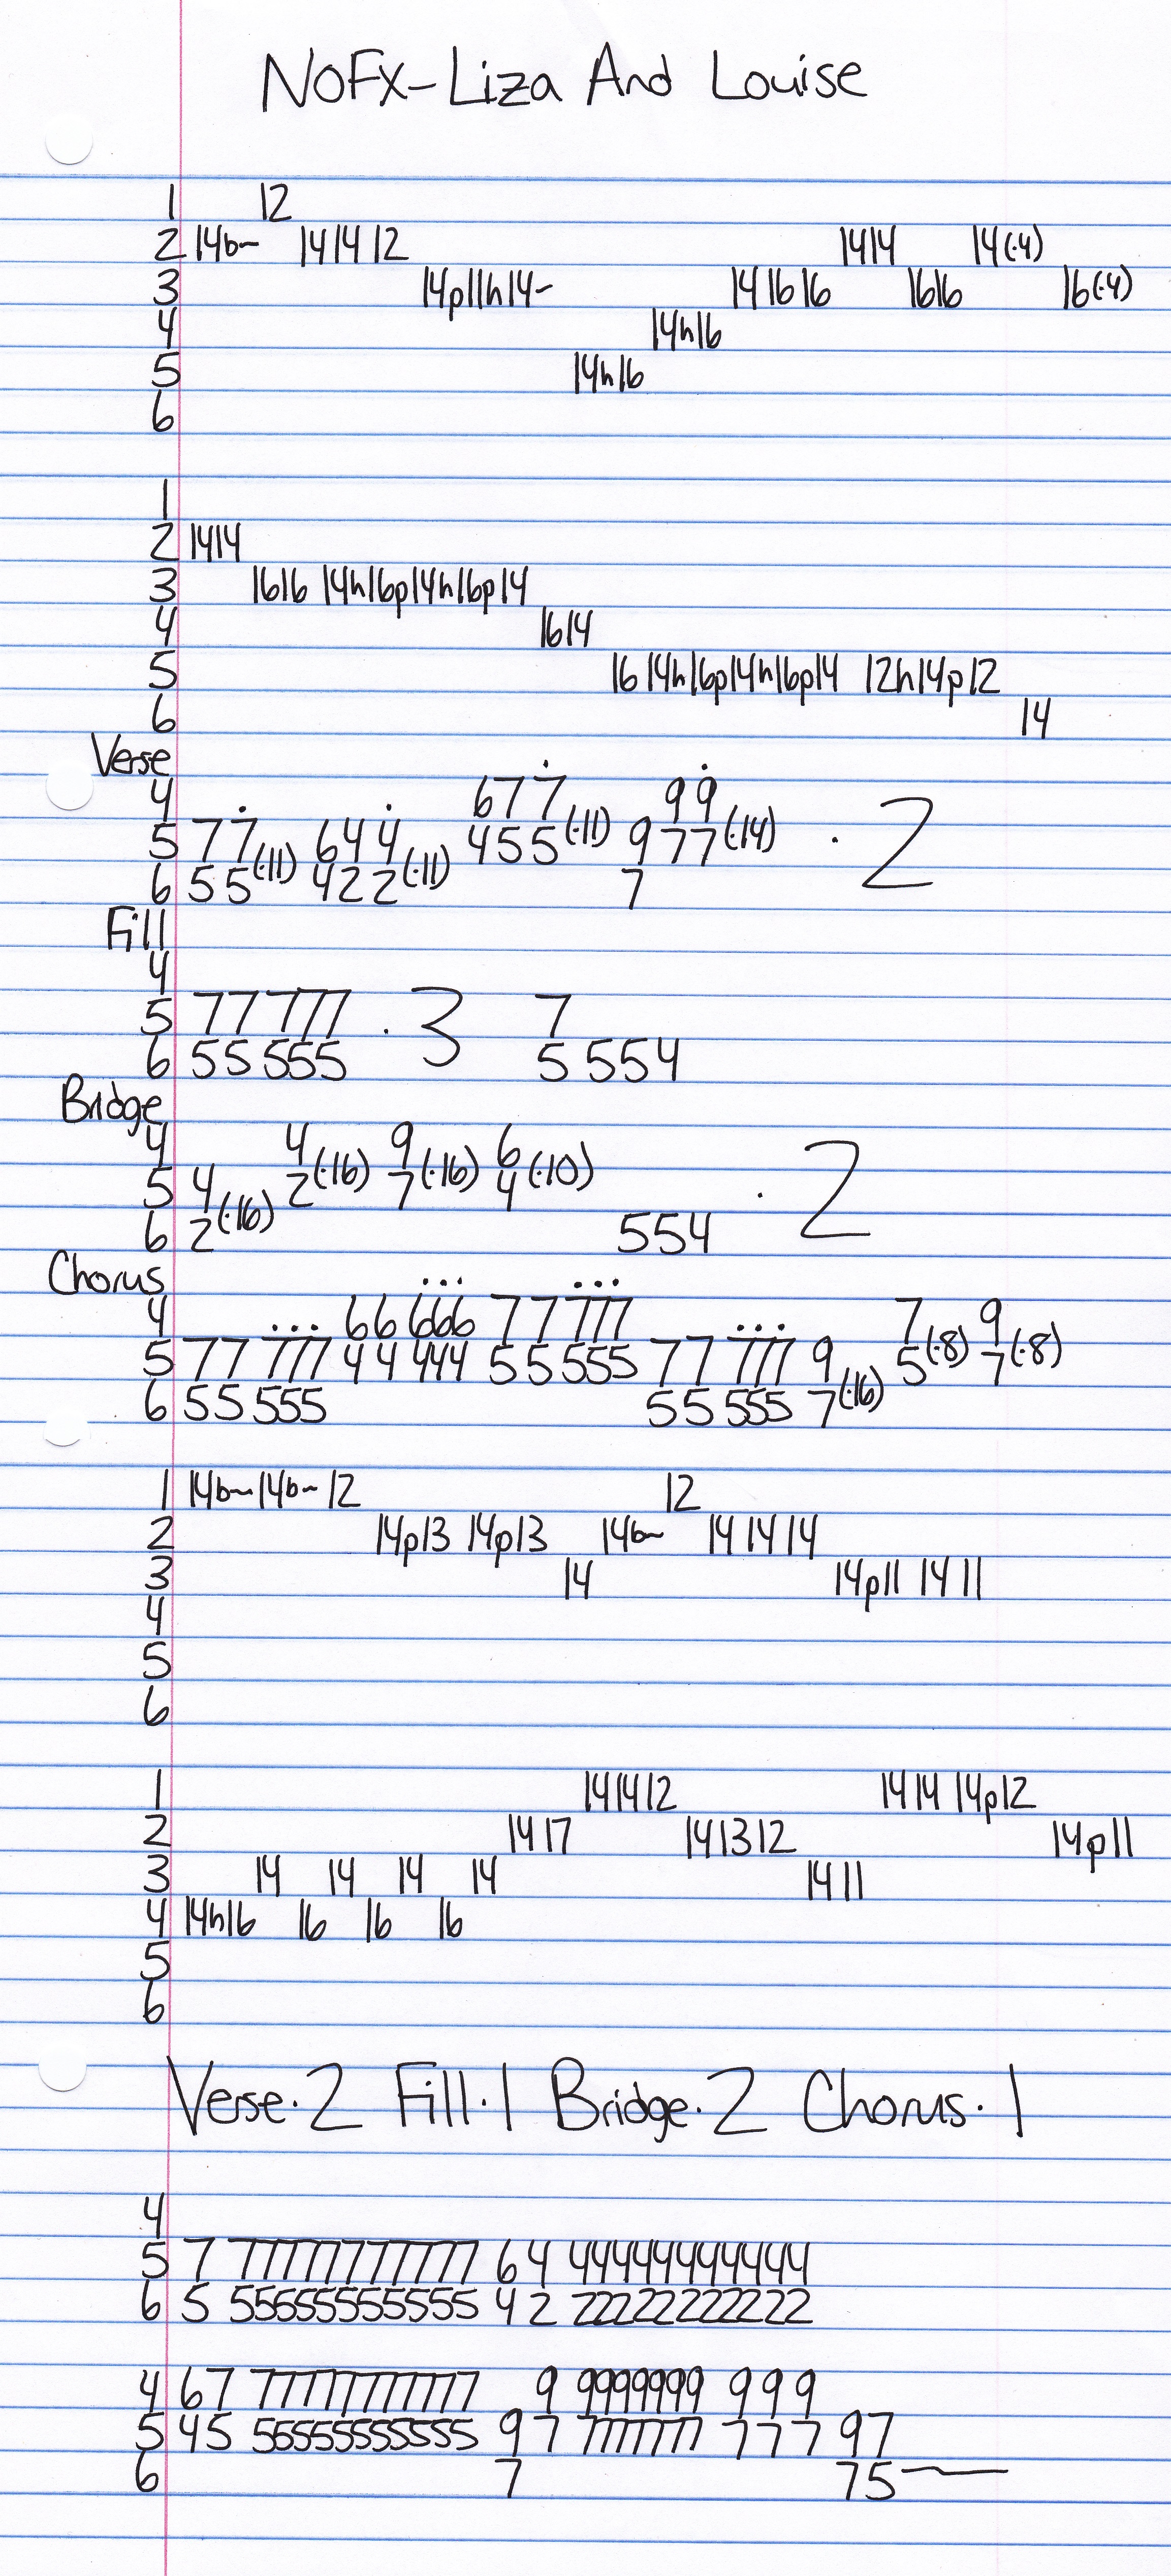 NOFX-Liza And Louise
1 12
2 14b~ 14 14 12 14 14 14(·4)
3 14p11h14~ 14 16 16 16 16 16(·4)
4 14h16
5 14h16
6
1
2 14 14
3 16 16 14h16p14h16p14
4 16 14
5 16 14h16p14h16p14 12h14p12
6 14
Verse
4 6 7 7 9 9
5 7 7(·11) 6 4 4(·11) 4 5 5(·11) 9 7 7(·14) · 2
6 5 5 4 2 2 7
Fill
4
5 77 777 · 3 7
6 55 555 5 554
Bridge
4 4 9 6
5 4 2(·16) 7(·16) 4(·10) · 2
6 2(·16) 554
Chorus
4 66 666 77 777 7 9
5 77 777 44 444 55 555 77 777 9 5(·8) 7(·8)
6 55 555 55 555 7(·16)
1 14b~ 14b~ 12 12
2 14p13 14p13 14b~ 14 14 14
3 14 14p11 14 11
4
5
6
1 14 14 12 14 14 14p12
2 14 17 14 13 12 14p11
3 14 14 14 14 14 11
4 14h16 16 16 16
5
6
Verse·2 Fill·1 Bridge·2 Chorus·1
4
5 7 77777777777 64 44444444444
6 5 55555555555 42 22222222222
4 67 77777777777 9 9999999 999
5 45 55555555555 97 7777777 777 97
6 7 75